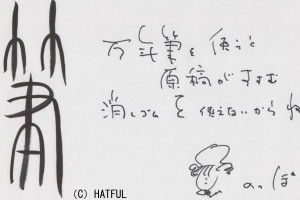 筆
万年筆を使うと
原稿がすすむ
消しゴムを使えないからね
(C) HATFUL